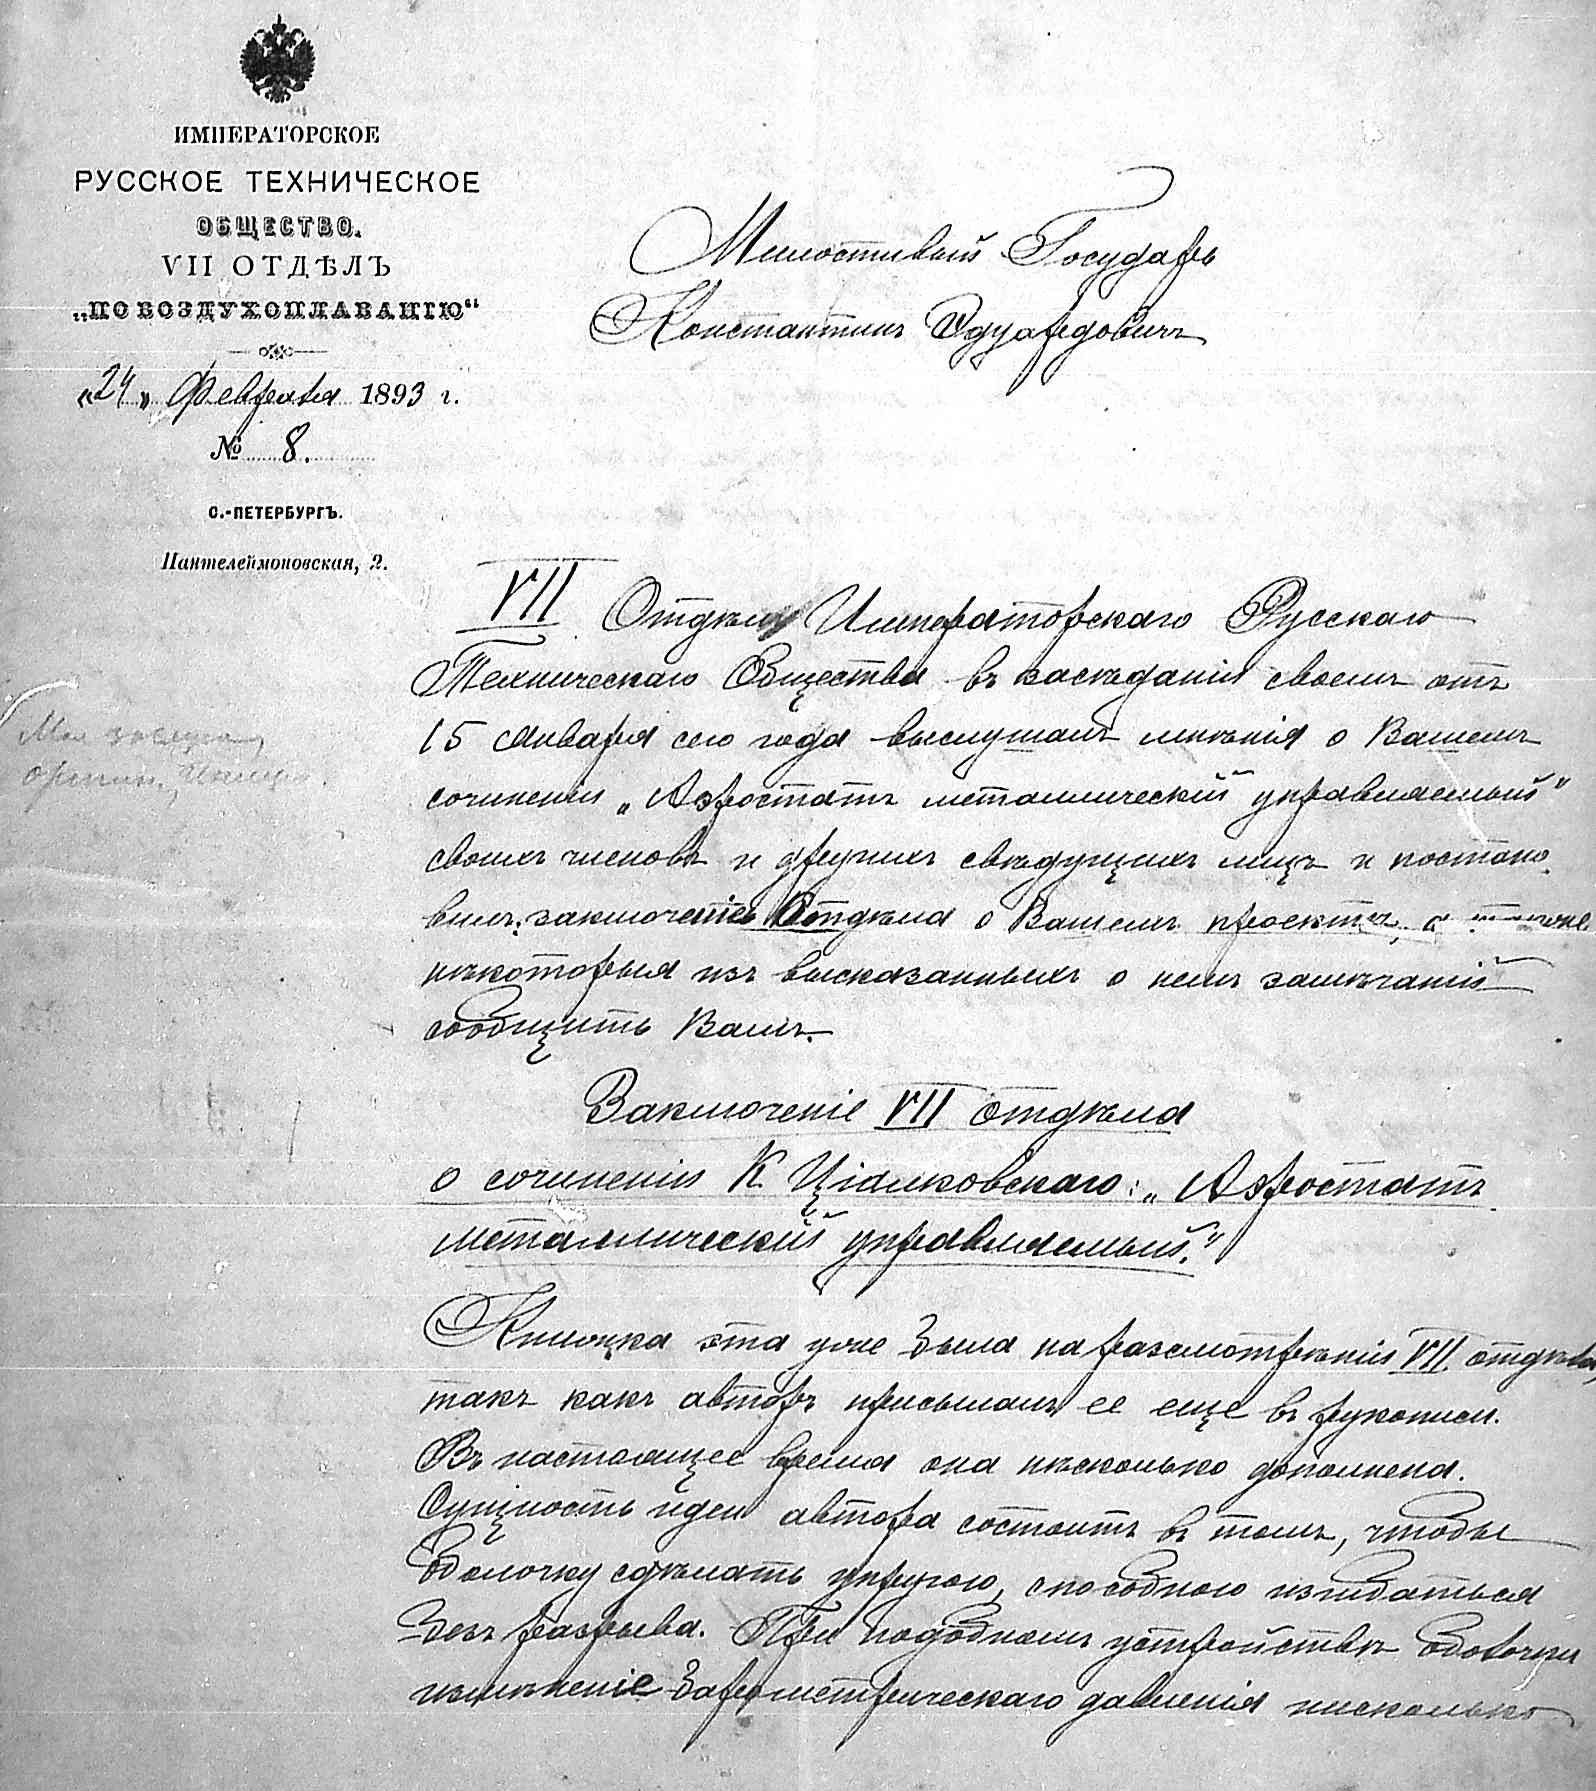 ИМПЕРАТОРСКОЕ
РУССКОЕ ТЕХНИЧЕСКОЕ
ОБЩЕСТВО.
VII ОТДѢЛЪ
„ПО ВОЗДУХОПЛАВАНІЮ“
„24„ Февраля 1893 г.
№ 8.
С.-ПЕТЕРБУРГЪ.
Пантелеймоновская, 2.
Милостивый Государь
Константинъ Эдуардовичъ
VII Отдѣлъ Императорскаго Русскаго
Техническаго Общества въ засѣданіи своемъ отъ
15 Января сего года выслушалъ мнѣнія о Вашемъ
сочиненіи „Аэростатъ металлическій управляемый“
своихъ членовъ и другихъ свѣдущихъ лицъ и постано
вилъ: заключеніе Отдѣла о Вашемъ проектѣ, а также
нѣкоторыя изъ высказанныхъ о немъ замѣчаній
сообщить Вамъ.
Заключеніе VII отдѣла
о сочиненіи К. Ціолковскаго: „Аэростатъ
металлическій управляемый.“
Книжка эта уже была на разсмотрѣніи VII отдѣла,
такъ какъ авторъ присылалъ ее еще въ рукописи.
Въ настоящее время она нѣсколько дополнена.
Сущность идеи автора состоитъ въ томъ, чтобы
оболочку сдѣлать упругою, способною изгибаться
безъ разрыва. При подобномъ устройствѣ оболочки
измѣненіе барометрическаго давленія нисколько